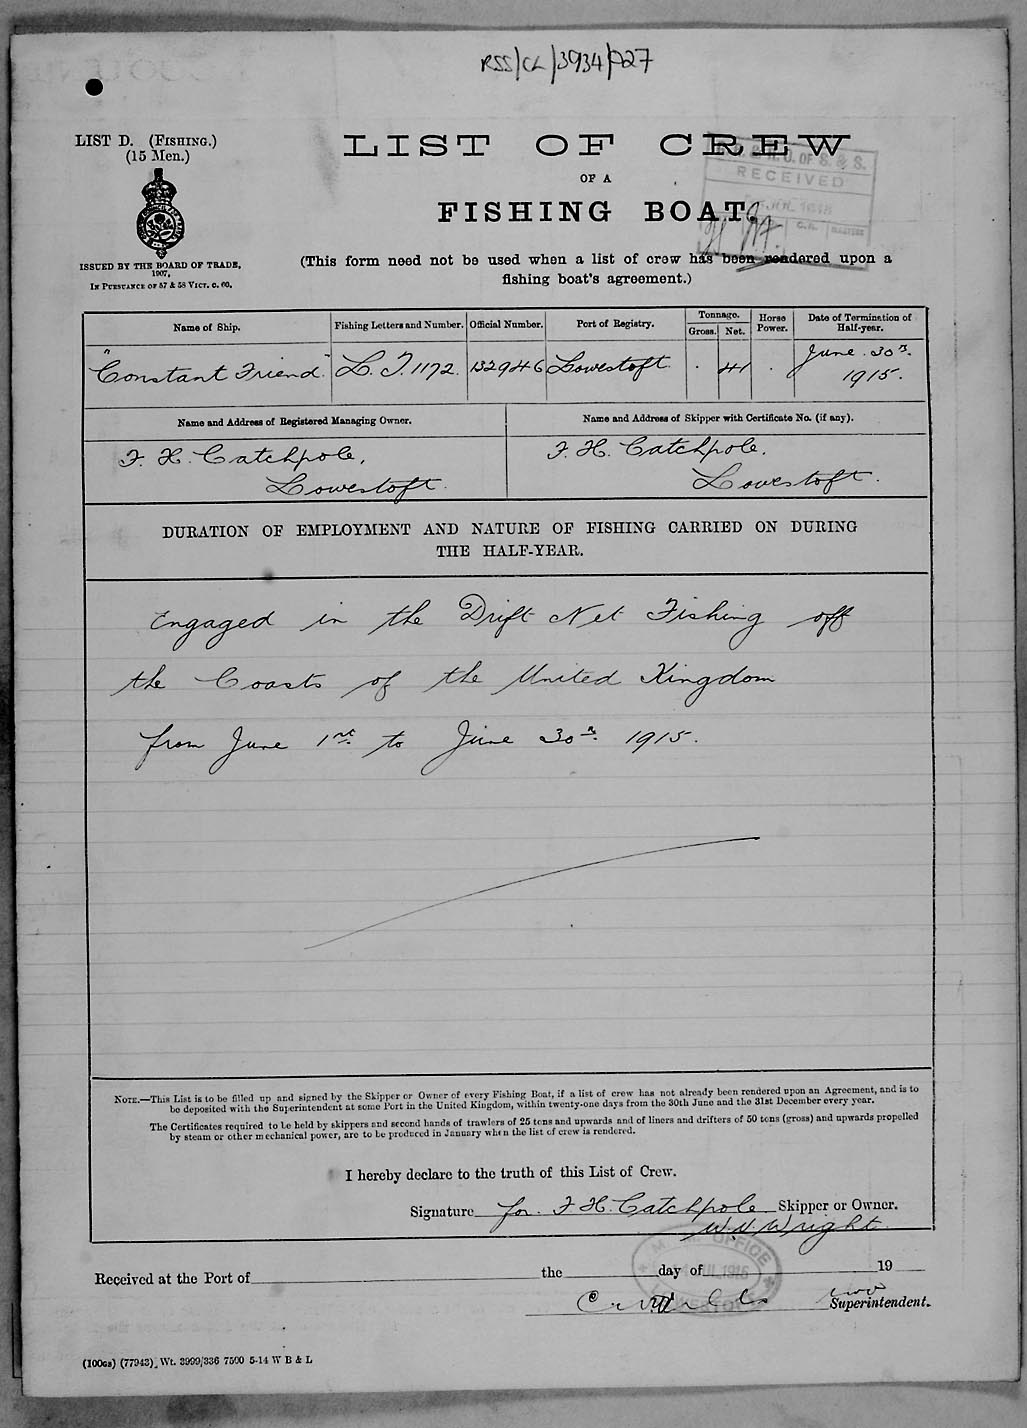 RSS/CL/3934/P27
LIST D. (FISHING.)
(15 Men.)
LIST OF CREW
OF A
FISHING BOAT.
RECEIVED
ISSUED BY THE BOARD OF TRADE,
1907,
IN PURSUANCE OF 57 & 58 VICT. C. 60.
(This form need not be used when a list of crew has been rendered upon a
fishing boat's agreement.)
Name of Ship. Fishing Letters and Number. Official Number. Port of Registry. Tonnage. Gross. Net. Horse Power. Date of Termination of Half-year.
"Constant Friend" L.T. 1172. 132946 Lowestoft. 41 June 30th. 1915.
Name and Address of Registered Managing Owner. Name and Address of Skipper with Certificate No. (if any).
F. H. Catchpole, F. H. Catchpole.
Lowestoft. Lowestoft.
DURATION OF EMPLOYMENT AND NATURE OF FISHING CARRIED ON DURING
THE HALF-YEAR.
Engaged in the Drift Net Fishing off
the Coasts of the United Kingdom
from June 1st. to June 30th. 1915.
NOTE.—This List is to be filled up and signed by the Skipper or Owner of every Fishing Boat, if a list of crew has not already been rendered upon an Agreement, and is to
be deposited with the Superintendent at some Port in the United Kingdom, within twenty-one days from the 30th June and the 31st December every year.
The Certificates required to be held by skippers and second hands of trawlers of 25 tons and upwards and of liners and drifters of 50 tons (gross) and upwards propelled
by steam or other mechanical power, are to be produced in January when the list of crew is rendered.
I hereby declare to the truth of this List of Crew.
Signature for. F H. Catchpole Skipper or Owner.
W. V. Wright.
Received at the Port of the day of 19
Superintendent.
(100GS) (77943). Wt. 3999/336 7500 5-14 W B & L